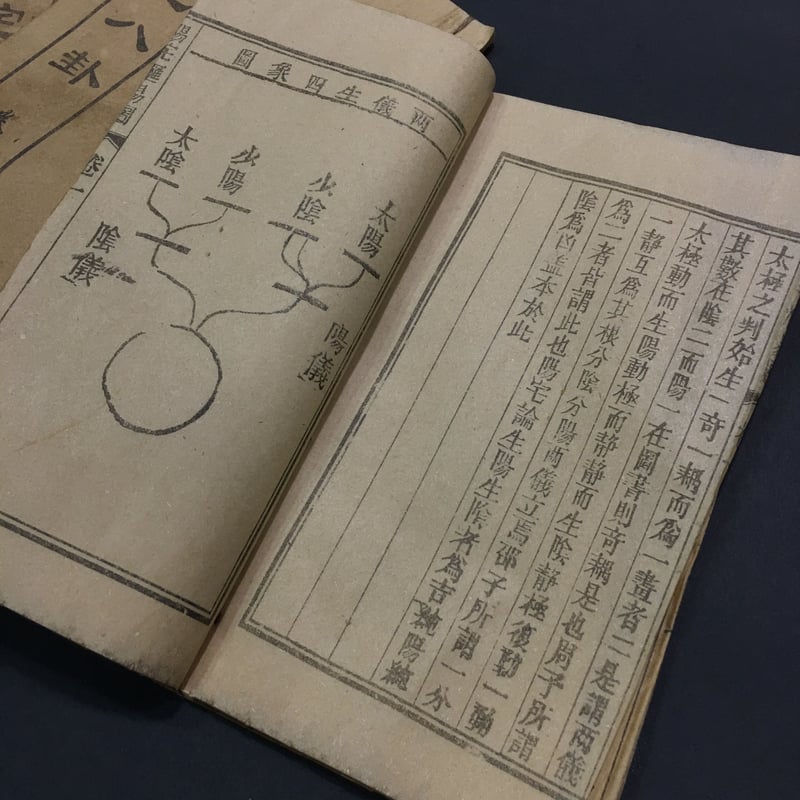 太極之判始生一奇一耦而爲一畫者二是謂兩儀
其數在陰二而陽一在圖書則奇耦是也周子所謂
太極動而生陽動極而靜靜而生陰靜極復動一動
一靜互爲其根分陰分陽兩儀立焉邵子所謂一分
爲二者皆謂此也陽宅論生陽生陰者爲吉純陽純
陰爲凶蓋本於此
兩儀生四象圖
太陽
少陰
少陽
太陰
陽儀
陰儀
卷一
八卦